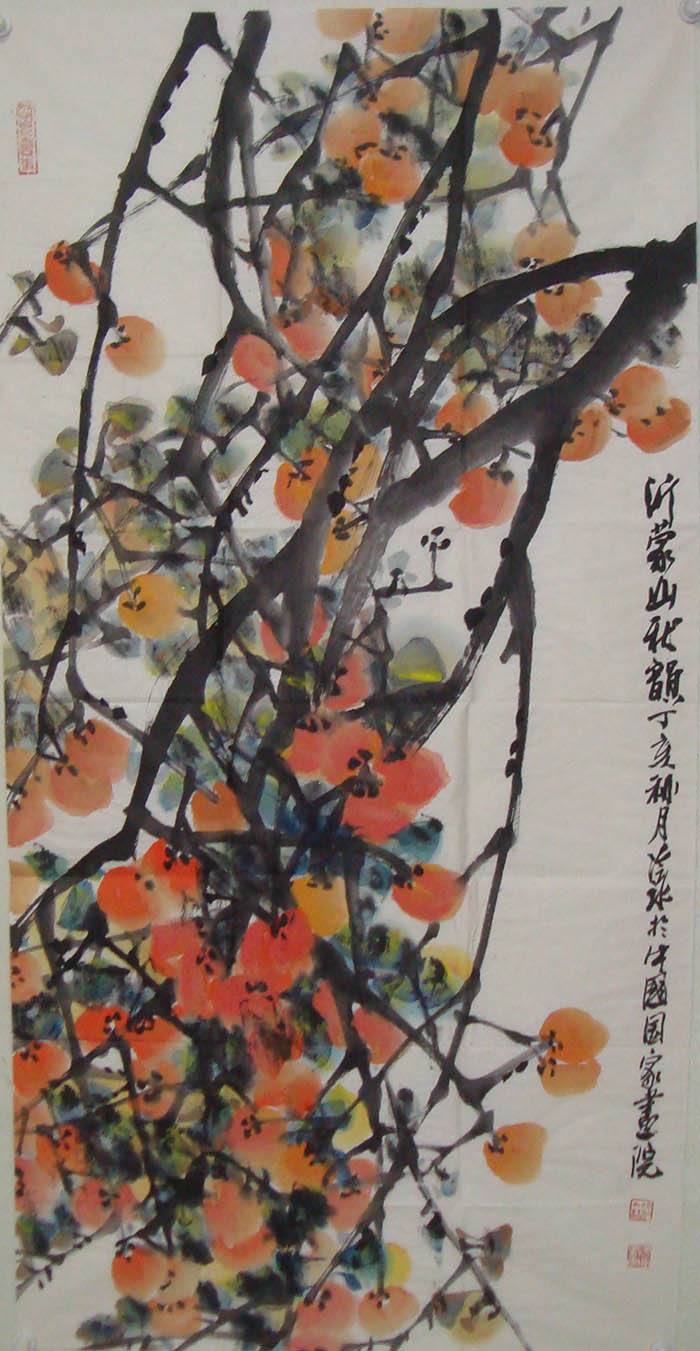 沂蒙山秋韻丁亥秋月於中國国家畫院